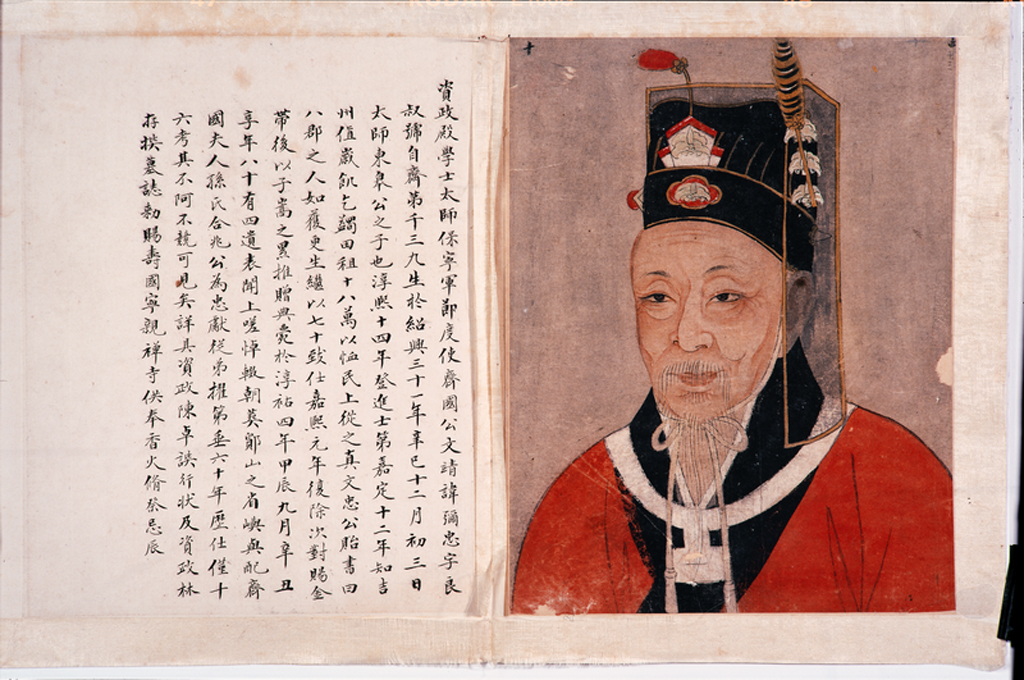 資政殿學士太師保寧軍節度使齊國公文靖諱彌忠字良
叔號自齋第千三九生於紹興三十一年辛巳十二月初三日
太師東皋公之子也淳熙十四年登進士第嘉定十二年知吉
州值歲飢乞蠲田租十八萬以恤民上從之真文忠公貽書曰
八郡之人如獲更生繼以七十致仕嘉熙元年復除次對賜金
帶後以子嵩之累推贈典薨於淳祐四年甲辰九月辛丑
享年八十有四遺表聞上嗟悼輟朝葬鄮山之省嶼與配齊
國夫人孫氏合兆公為忠獻從弟擢第垂六十年歷仕僅十
六考其不阿不競可見矣詳具資政陳卓譔行狀及資政林
存撰墓誌勑賜壽國寧親禪寺供奉香火脩祭忌辰
十